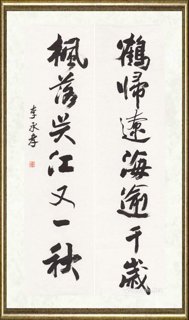 鶴歸遼海逾千歲
楓落吴江又一秋
李永孝